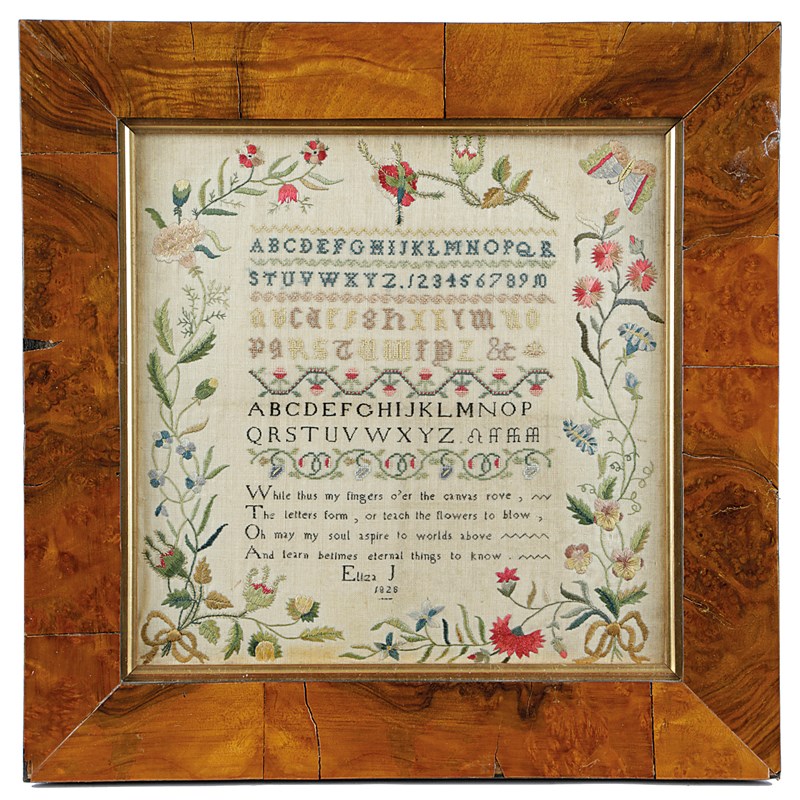 ABCDEFGHIJKLMNOPQR
STUVWXYZ.12345678910
QRSTUVWXYZ &c
ABCDEFGHIJKLMNOP
QRSTUVWXYZ.
While thus my fingers o'er the canvas rove,
The letters form, or teach the flowers to blow,
Oh may my soul aspire to worlds above
And learn betimes eternal things to know.
Eliza J
1828